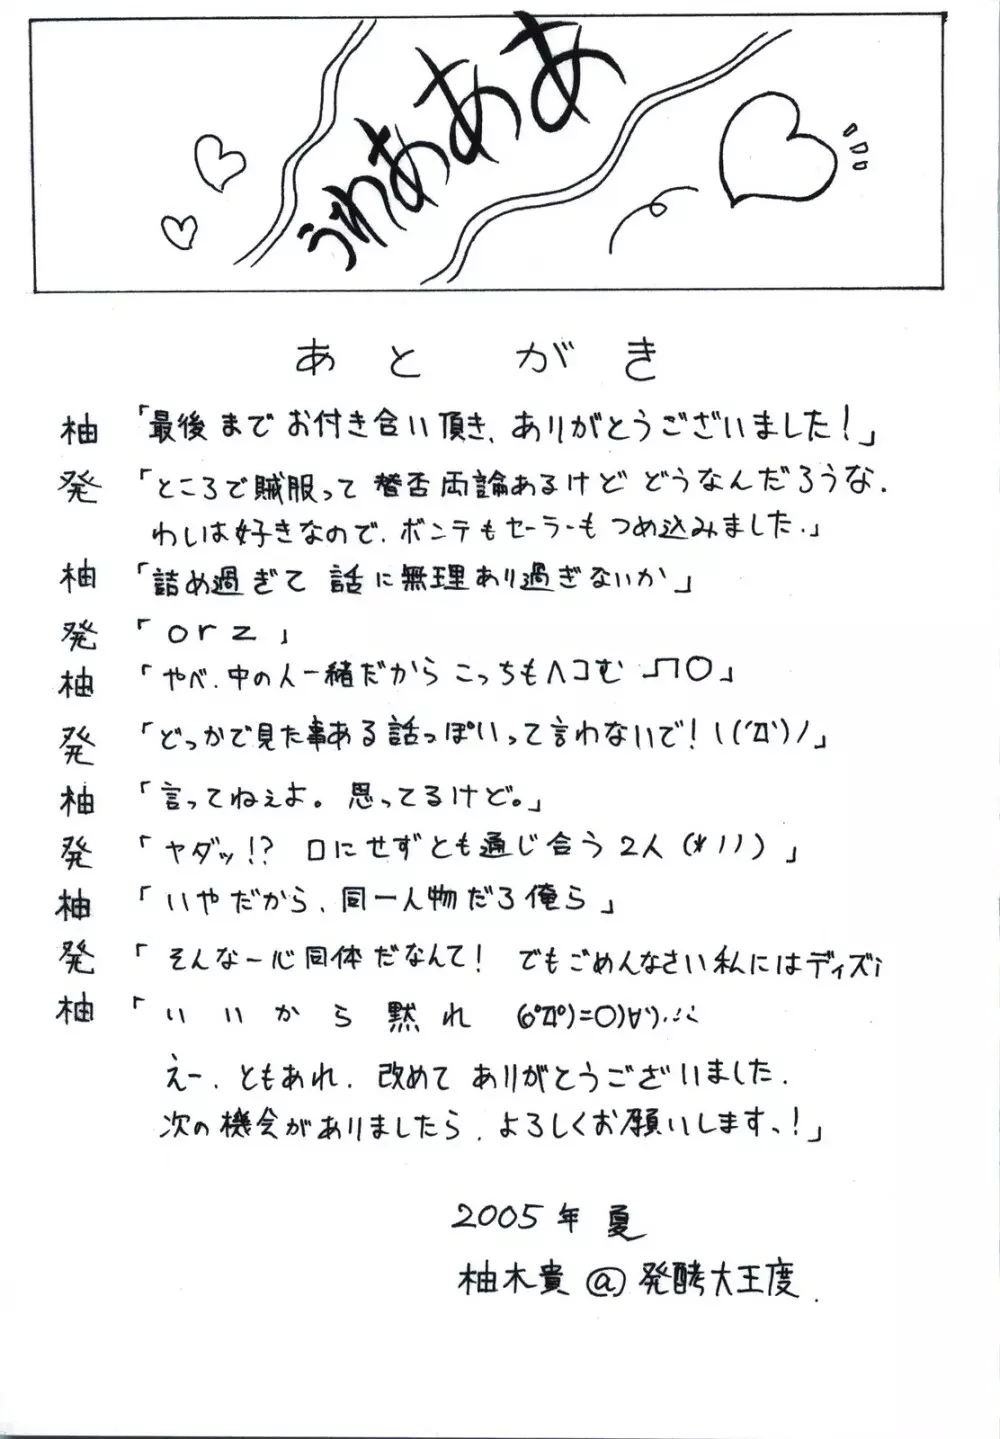 うわぁあああ
あとがき
柚「最後までお付き合い頂き、ありがとうございました!」
発「ところで賊服って賛否両論あるけどどうなんだろうな.
わしは好きなので、ボンテもセーラーもつめ込みました.」
柚「詰め過ぎて話に無理あり過ぎないか」
発「orz」
柚「やべ、中の人一緒だからこっちもヘコむ _| ̄|○」
発「どっかで見た事ある話っぽいって言わないで!ヽ(´Д`)ノ」
柚「言ってねぇよ。思ってるけど。」
発「ヤダッ!? 口にせずとも通じ合う2人(*ノノ)」
柚「いやだから、同一人物だろ俺ら」
発「そんな一心同体だなんて! でもごめんなさい私にはディズi
柚「いいから黙れ (6゚Д゚)=O)∀`).∴;
えー、ともあれ、改めてありがとうございました.
次の機会がありましたら、よろしくお願いします、!」
2005年 夏
柚木貴@発酵大王度.